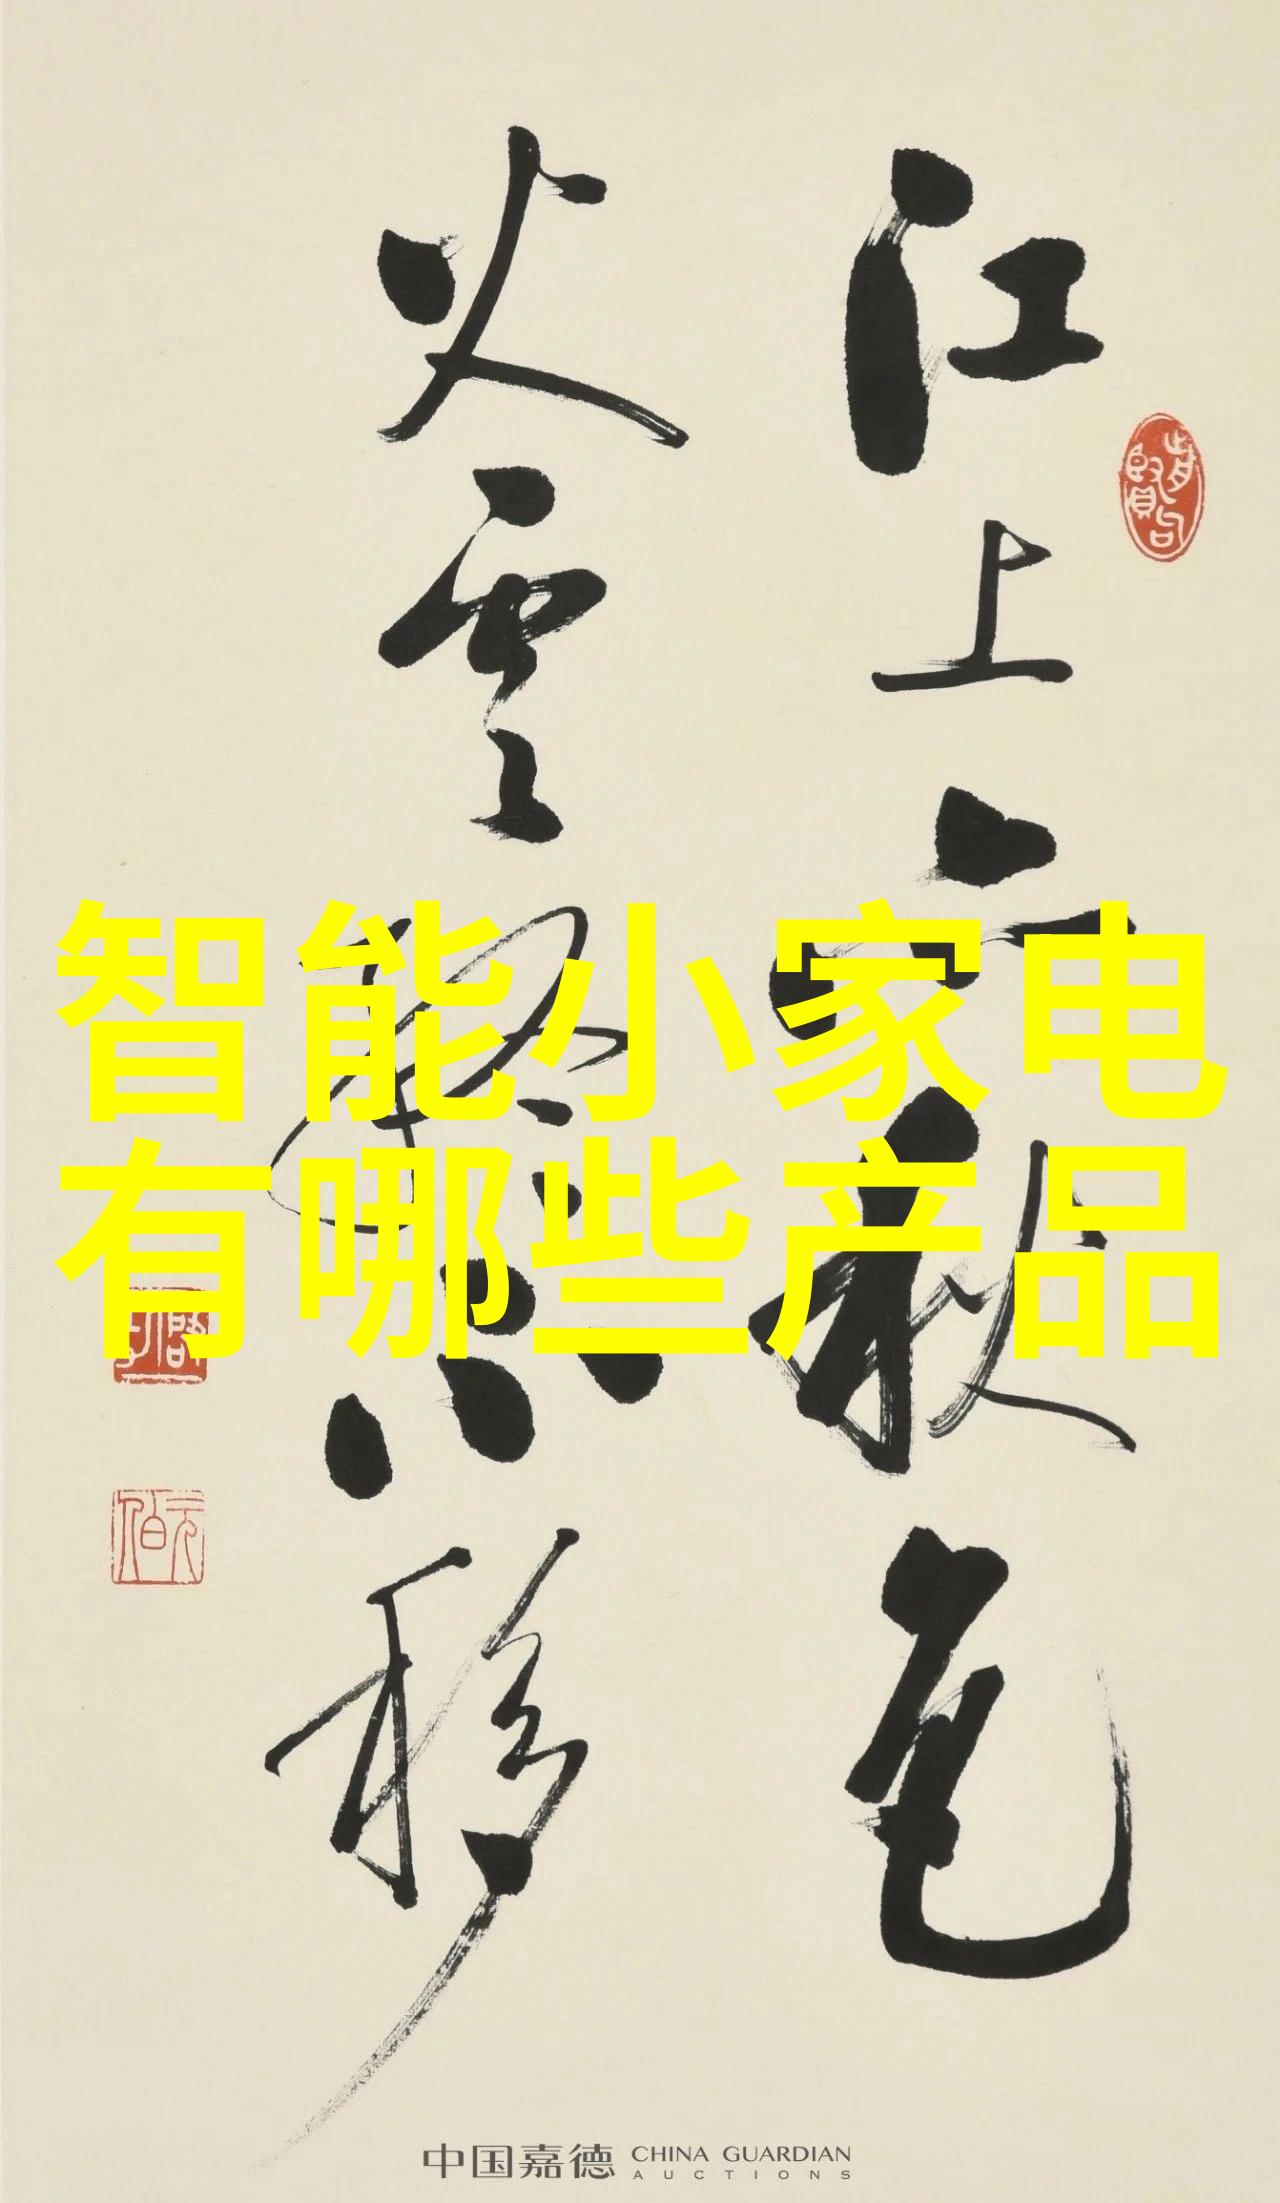 江上亦秋色
火雲終不移
智能小家电
有哪些产品
中国嘉德 CHINA GUARDIAN
AUCTIONS